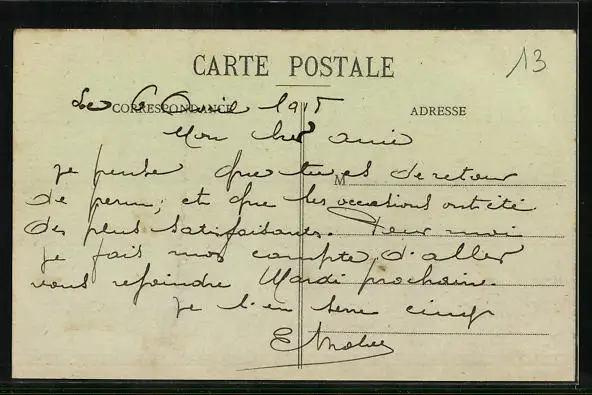 CARTE POSTALE
13
CORRESPONDANCE
ADRESSE
Le 6 Avril 1915
Mon cher ami
M
je pense que tu es de retour
de perm; et que les occasions ont été
des plus satisfaisantes. Pour moi
je fais mon compte d'aller
vous rejoindre Mardi prochain.
je t'en serre cinq